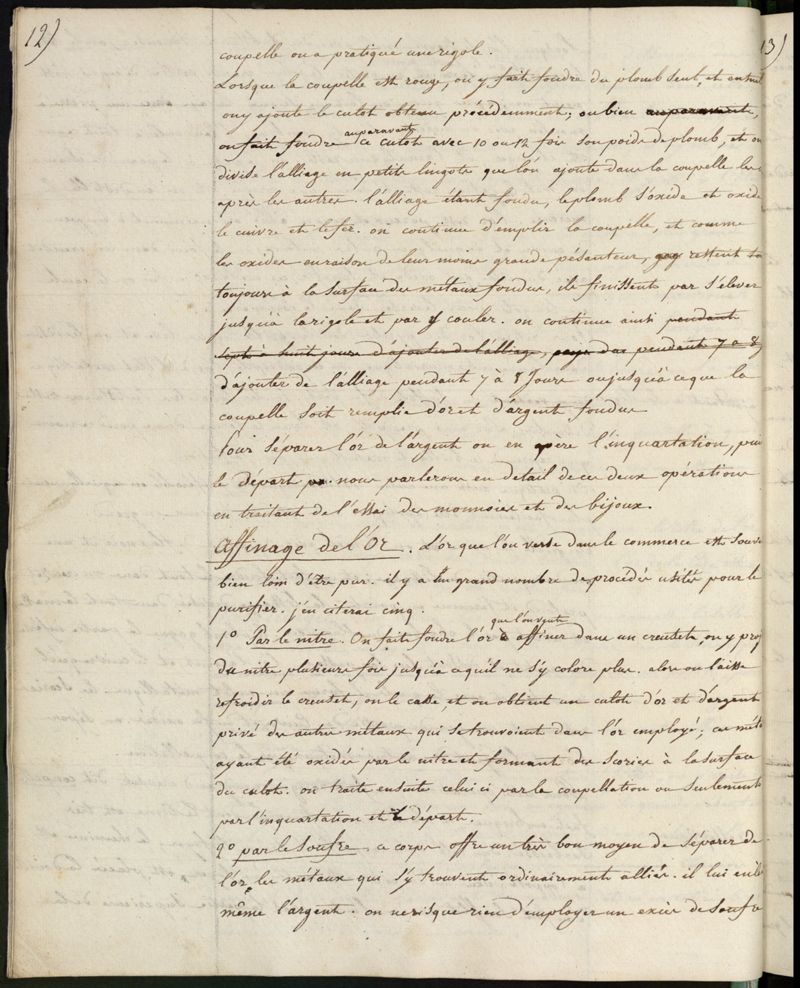 12)
13)
coupelle on a pratiqué une rigole.
Lorsque la coupelle est rouge, on y fait fondre du plomb seul, et ensuit
on y ajoute le culot obtenu précédemment; ou bien auparavant,
auparavant
on fait fondre ce culot avec 10 ou 12 fois son poids de plomb, et on
divise l'alliage en petits lingots que l'on ajoute dans la coupelle les uns
après les autres. l'alliage étant fondu, le plomb s'oxide et oxide
le cuivre et le fer. on continue d'emplir la coupelle, et comme
les oxides en raison de leur moins grande pésanteur, restent
toujours à la surface des métaux fondus, ils finissent par s'élever
jusqu'à la rigole et par y couler. on continue ainsi pendant
sept à huit jours d'ajouter de l'alliage, pendant 7 a 8
d'ajouter de l'alliage pendant 7 à 8 Jours ou jusqu'à ce que la
coupelle soit remplie d'or et d'argent fondus
Pour séparer l'or de l'argent on en opère l'inquartation, puis
le départ. nous parlerons en detail de ces deux opérations
en traitant de l'essai des monnoies et des bijoux.
Affinage de l'Or. L'or que l'on verse dans le commerce est souve
bien loin d'être pur. il y a un grand nombre de procédés usités pour le
purifier. j'en citerai cinq.
que l'on veut
1º Par le nitre. On fait fondre l'or affiner dans un creuset, on y proj
du nitre plusieurs fois jusqu'à ce qu'il ne s'y colore plus. alors on laisse
refroidir le creuset, on le casse, et on obtient un culot d'or et d'argent
privé des autres métaux qui se trouvoient dans l'or employé; ces méta
ayant été oxidés par le nitre et formant des scories à la surface
du culot. on traite ensuite celui ci par la coupellation ou seulement
par l'inquartation et le départ.
2º par le Soufre. ce corps offre un très bon moyen de séparer de
l'or, les métaux qui s'y trouvent ordinairement alliés. il lui enlè
même l'argent. on ne risque rien d'employer un excès de soufre